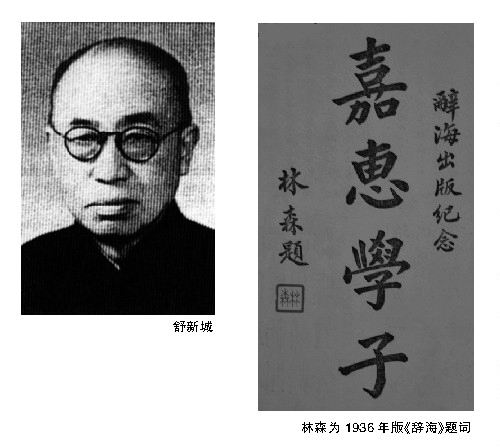 舒新城
辭海出版紀念
嘉惠學子
林森題
林森
林森为 1936 年版《辞海》题词